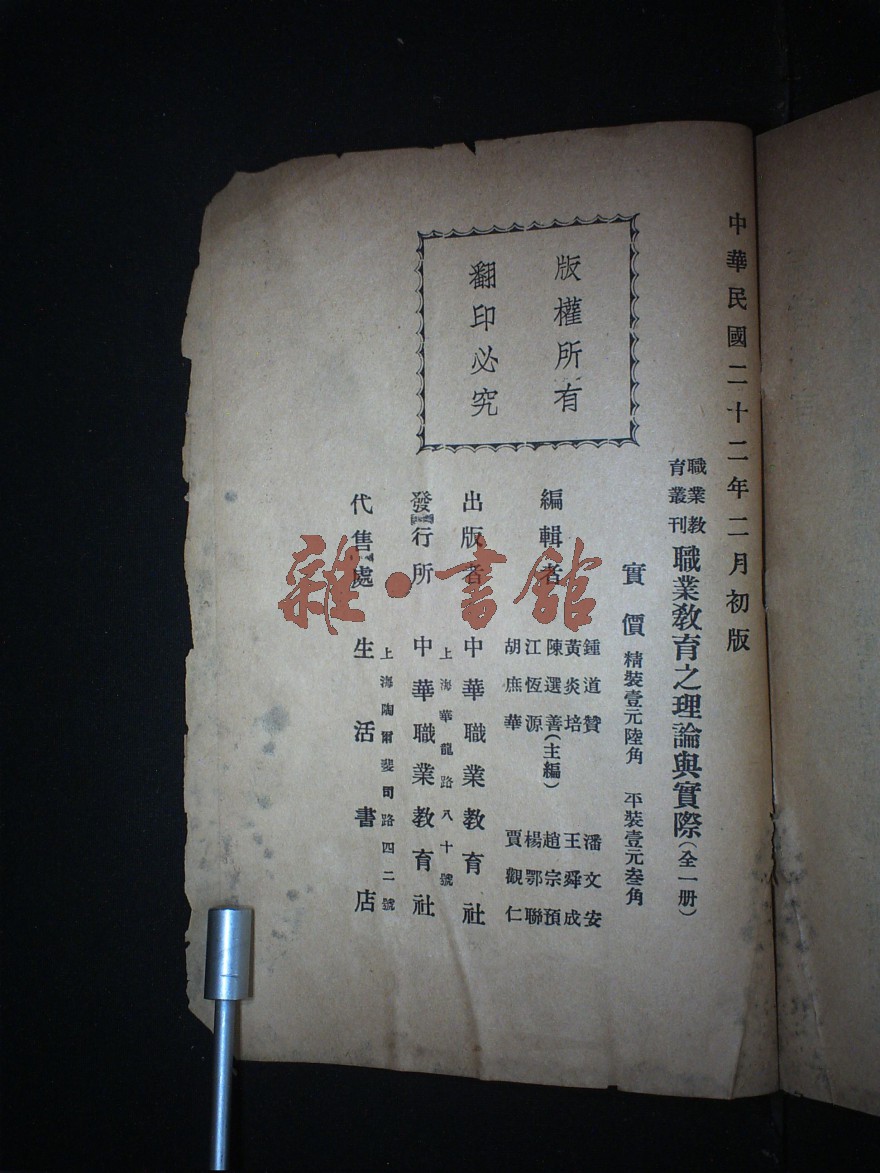 中華民國二十二年二月初版
職業教育叢刊
職業教育之理論與實際(全一册)
實價 精裝壹元陸角 平裝壹元叁角
版權所有
翻印必究
編輯者
鍾道贊 潘文安
黃炎培 王舜成
陳選善(主編) 趙宗預
江恆源 楊鄂聯
胡庶華 賈觀仁
出版者 中華職業教育社
上海華龍路八十號
發行所 中華職業教育社
上海陶爾斐司路四二號
代售處 生活書店
雜·書館